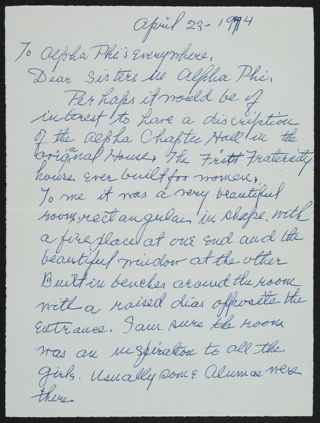 April 23- 1974
To Alpha Phi's Everywhere.
Dear Sisters in Alpha Phi.
Perhaps it would be of
interest to have a discription
of the Alpha Chapter Hall in the
original House. The First Fraternity
house ever built for women.
To me it was a very beautiful
room, rectangular in shape, with
a fireplace at one end and the
beautiful window at the other
Built in benches around the room
with a raised dias opposite the
Entrance. I am sure the room
was an inspiration to all the
girls. Usually some Alumae were
there